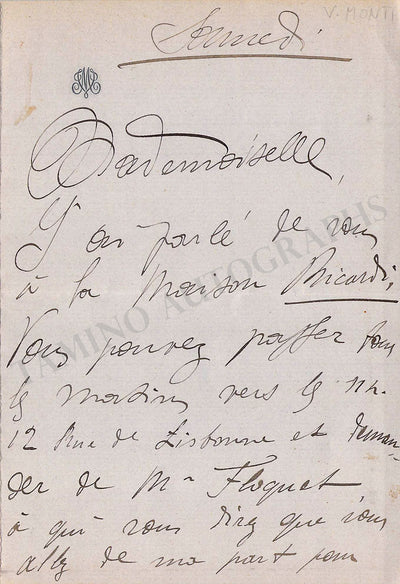 V. MONTI
Samedi
Mademoiselle,
J'ai parlé de vous
à la Maison Ricordi,
Vous pouvez passer tous
les matins vers les 11h.
12 Rue de Lisbonne et deman-
der de Mr Floquet
à qui vous direz que vous
allez de ma part pour
TAMINO AUTOGRAPHS